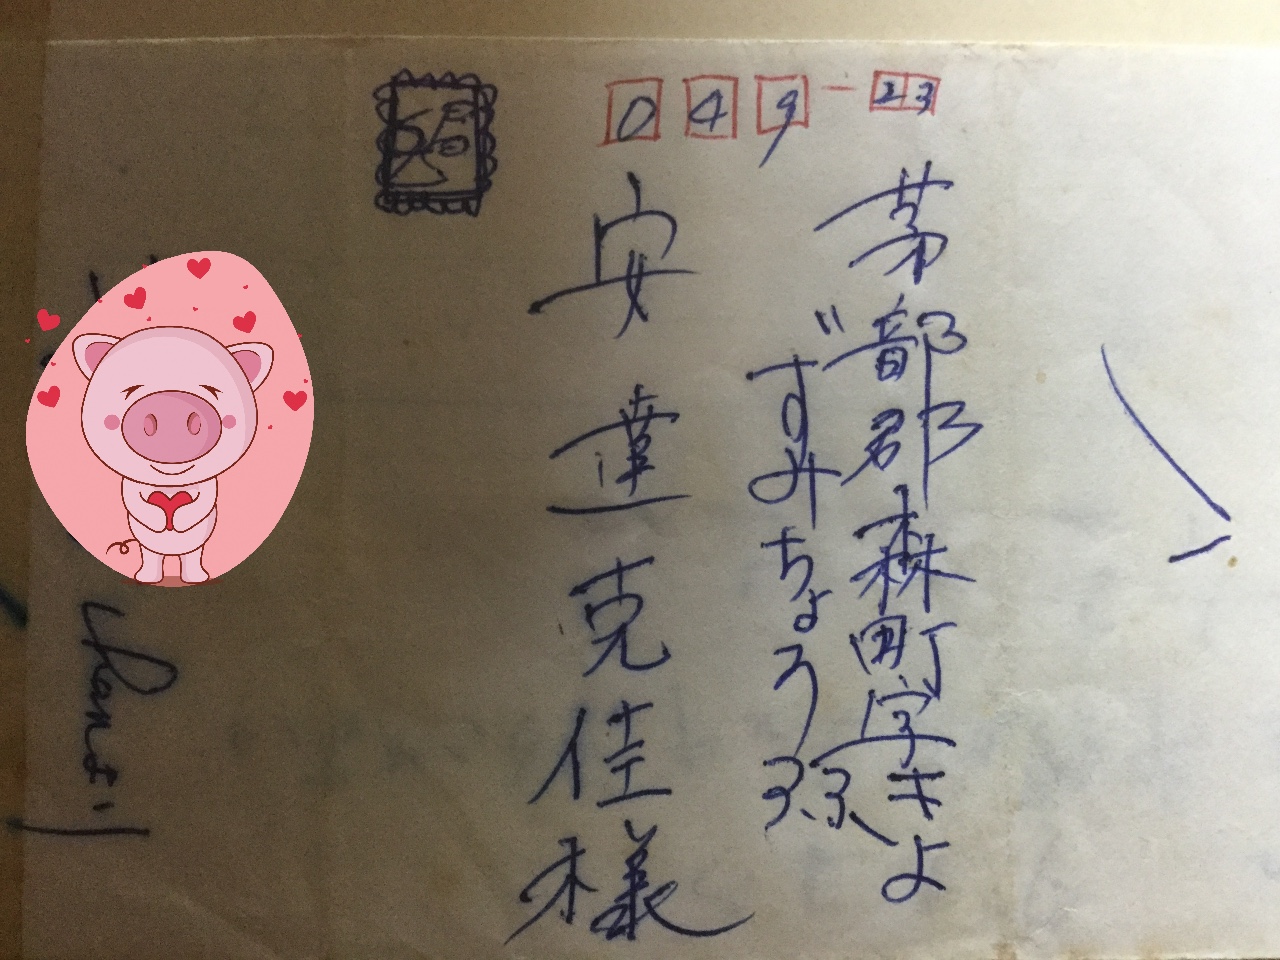 049-23
茅部郡森町字きよ
ずみちょう33
安達克佳様